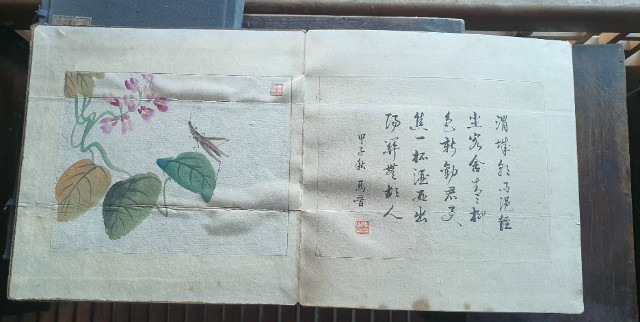 渭城朝雨浥輕
塵客舍青々柳
色新勸君更
進一杯酒西出
陽關無故人
甲子秋 馬晉